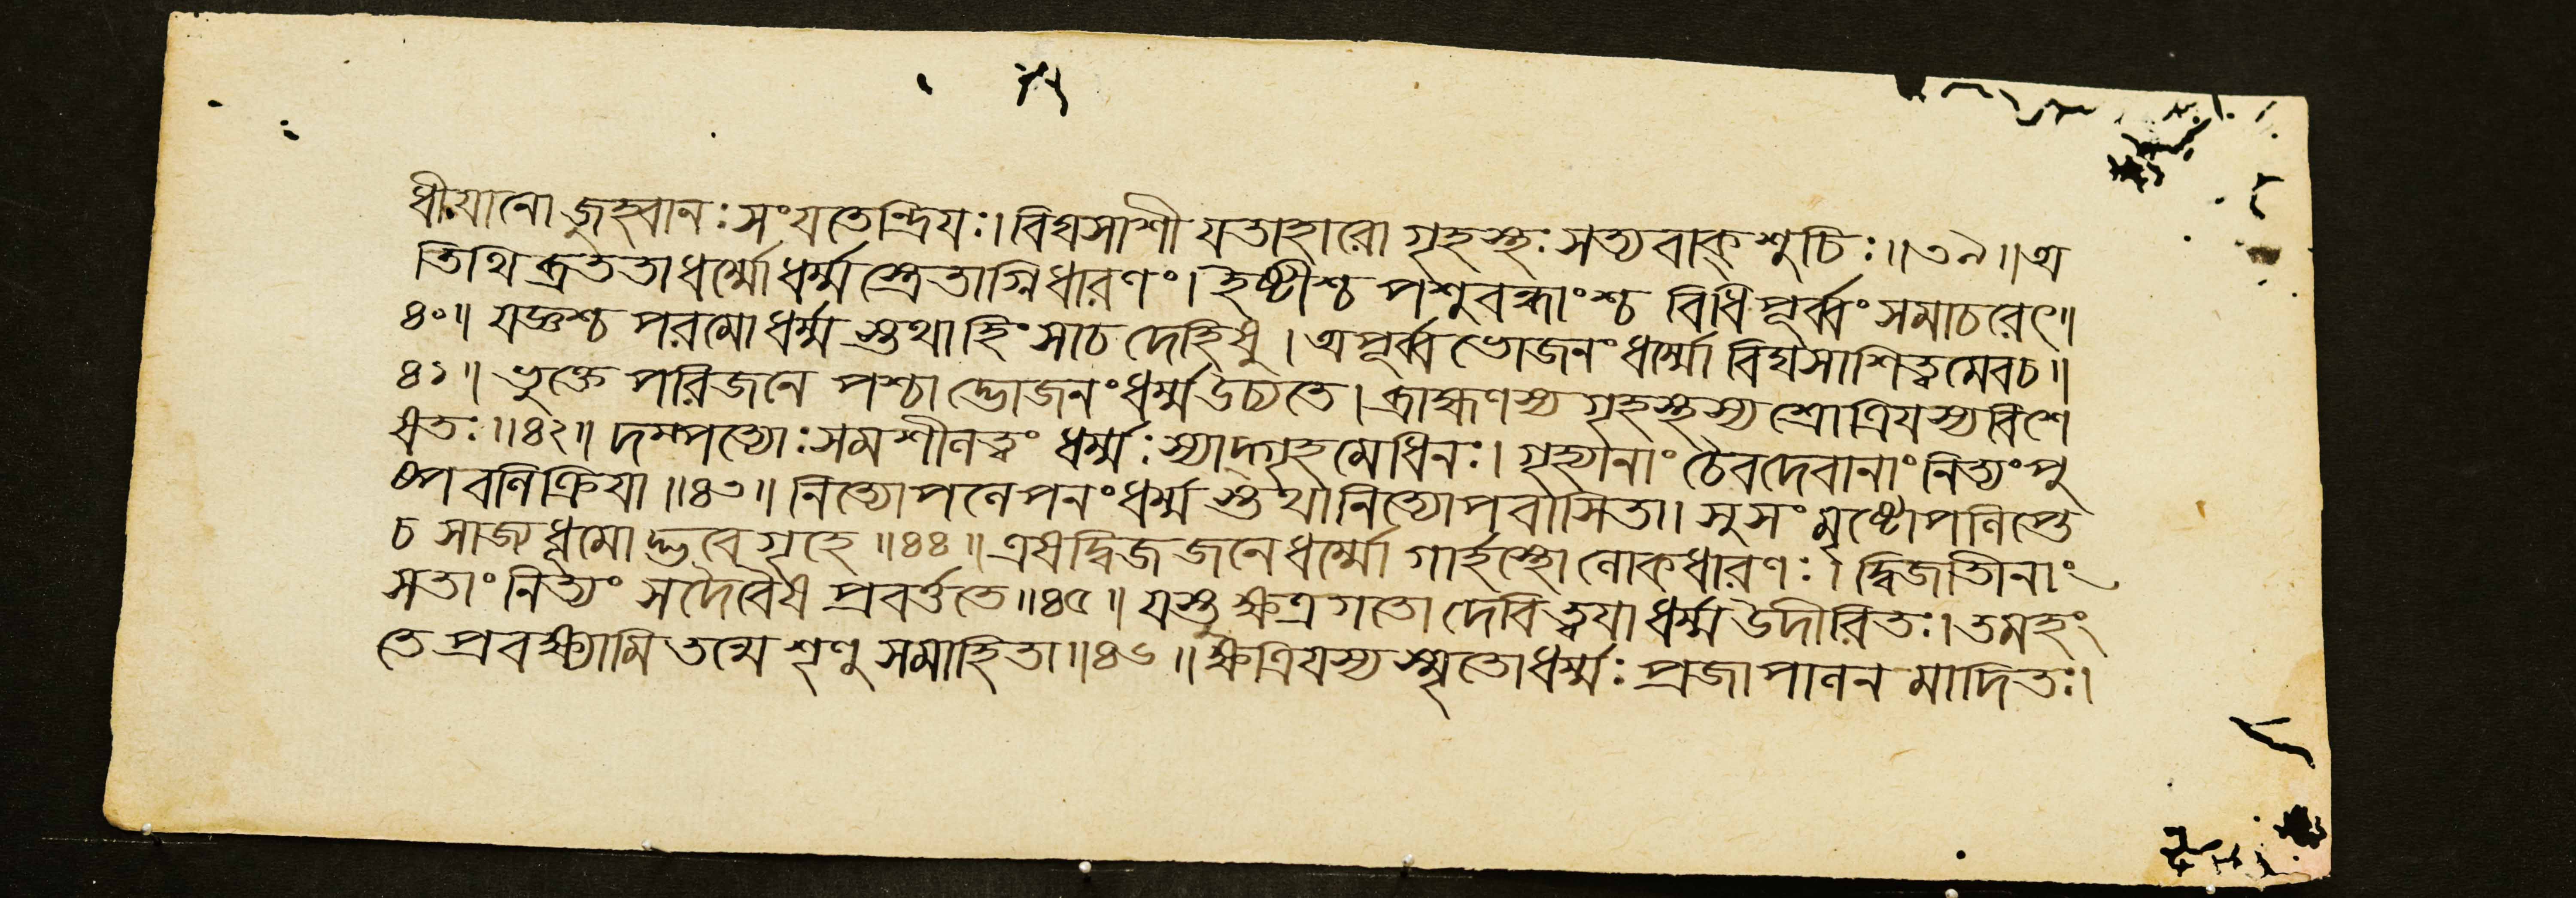 ধীযানো জুহ্বানঃ সংযতেন্দ্রিযঃ। বিঘসাশী যতাহারো গৃহস্থঃ সত্যবাক্ শুচিঃ॥৩৯॥ অ
তিথি ব্রততাধর্ম্মো ধর্ম্মস্ত্রেতাগ্নিধারণং। ইষ্টীশ্চ পশুবন্ধাংশ্চ বিধিপূর্ব্বং সমাচরেৎ॥
৪০॥ যজ্ঞশ্চ পরমো ধর্ম্মস্তুথাহিংসাচ দেহিষু। অপূর্ব্ব ভোজনং ধর্ম্মো বিঘসাশিত্বমেবচ॥
৪১॥ ভুক্তে পরিজনে পশ্চাদ্ভোজনং ধর্ম্ম উচ্যতে। ব্রাহ্মণস্য গৃহস্থস্য শ্রোত্রিযস্য বিশে
ষতঃ॥৪২॥ দম্পত্যোঃ সমশীলত্বং ধর্ম্মঃ স্যাদ্গৃহমেধিনঃ। গৃহ্যানাং চৈবদেবানাং নিত্যং পু
ষ্পবলিক্রিযা॥৪৩॥ নিত্যোপলেপনং ধর্ম্মস্তুথা নিত্যোপবাসিতা। সুসংমৃষ্টোপলিপ্তে
চ সাজ্যধূমোদ্ভবে গৃহে॥৪৪॥ এষদ্বিজ জনে ধর্ম্মো গার্হস্থ্যো লোকধারণঃ। দ্বিজাতীনাং
সতাং নিত্যং সদৈবৈষ প্রবর্ত্ততে॥৪৫॥ যস্তু ক্ষত্রগতো দেবি ত্বযা ধর্ম্ম উদীরিতঃ। তমহং
তে প্রবক্ষ্যামি তন্মে শৃণু সমাহিতা॥৪৬॥ ক্ষত্রিযস্য স্মৃতো ধর্ম্মঃ প্রজাপালন মাদিতঃ।